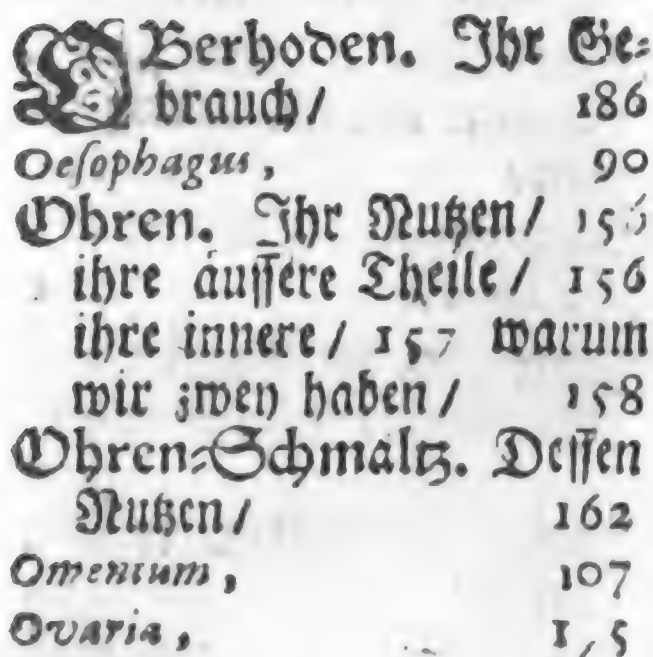 OBerhoden. Ihr Ge⸗
brauch / 186
Oesophagus, 90
Ohren. Ihr Nutzen /
ihre äussere Theile / 156
ihre innere / 157 warum
wir zwey haben / 158
Ohren⸗Schmaltz. Dessen
Nutzen / 162
Omentum, 107
Ovaria,